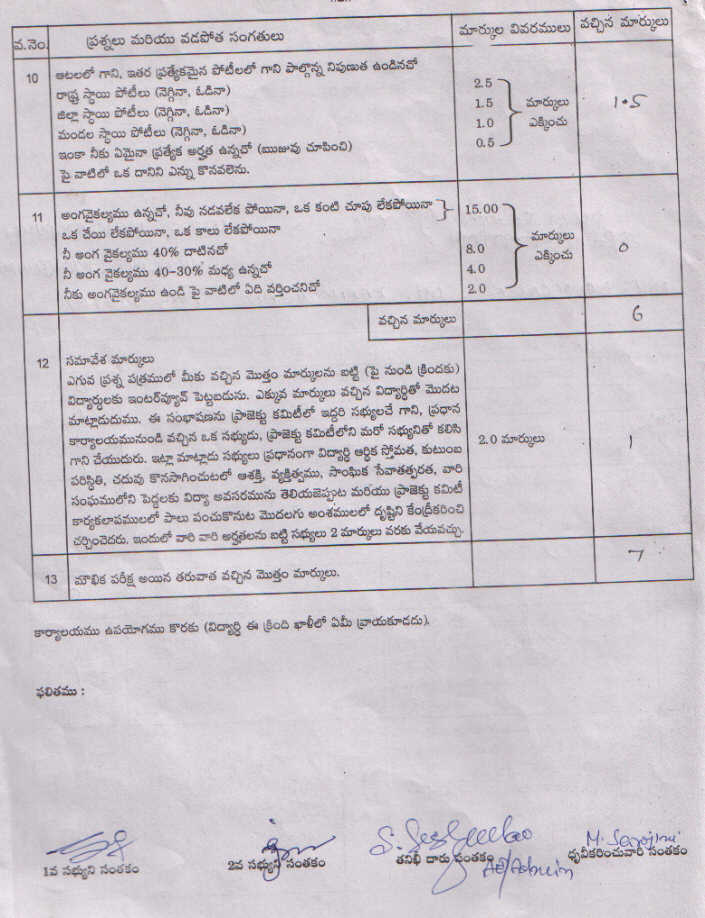 వ.నెం.	ప్రశ్నలు మరియు వడపోత సంగతులు	మార్కుల వివరములు	వచ్చిన మార్కులు
10 ఆటలలో గాని, ఇతర ప్రత్యేకమైన పోటీలలో గాని పాల్గొన్న నిపుణత ఉండినచో
రాష్ట్ర స్థాయి పోటీలు (నెగ్గినా, ఓడినా) 2.5
జిల్లా స్థాయి పోటీలు (నెగ్గినా, ఓడినా) 1.5 మార్కులు 1.5
మండల స్థాయి పోటీలు (నెగ్గినా, ఓడినా) 1.0 ఎక్కించు
ఇంకా నీకు ఏమైనా ప్రత్యేక అర్హత ఉన్నచో (ఋజువు చూపించి) 0.5
పై వాటిలో ఒక దానిని ఎన్ను కొనవలెను.
11 అంగవైకల్యము ఉన్నచో, నీవు నడవలేక పోయినా, ఒక కంటి చూపు లేకపోయినా 15.00
ఒక చేయి లేకపోయినా, ఒక కాలు లేకపోయినా మార్కులు
నీ అంగ వైకల్యము 40% దాటినచో 8.0 ఎక్కించు 0
నీ అంగ వైకల్యము 40-30% మధ్య ఉన్నచో 4.0
నీకు అంగవైకల్యము ఉండి పై వాటిలో ఏది వర్తించనిచో 2.0
వచ్చిన మార్కులు 6
12 సమావేశ మార్కులు
ఎగువ ప్రశ్న పత్రములో మీకు వచ్చిన మొత్తం మార్కులను బట్టి (పై నుండి క్రిందకు)
విద్యార్థులకు ఇంటర్‌వ్యూవ్ పెట్టబడును. ఎక్కువ మార్కులు వచ్చిన విద్యార్థితో మొదట
మాట్లాడుదుము. ఈ సంభాషణను ప్రాజెక్టు కమిటీలో ఇద్దరి సభ్యులచే గాని, ప్రధాన
కార్యాలయమునుండి వచ్చిన ఒక సభ్యుడు, ప్రాజెక్టు కమిటీలోని మరో సభ్యునితో కలిసి
గాని చేయుదురు. ఇట్లా మాట్లాడు సభ్యులు ప్రధానంగా విద్యార్థి ఆర్థిక స్తోమత, కుటుంబ 2.0 మార్కులు 1
పరిస్థితి, చదువు కొనసాగించుటలో ఆశక్తి, వ్యక్తిత్వము, సాంఘిక సేవాతత్పరత, వారి
సంఘములోని పెద్దలకు విద్యా అవసరమును తెలియజెప్పుట మరియు ప్రాజెక్టు కమిటీ
కార్యకలాపములలో పాలు పంచుకొనుట మొదలగు అంశములలో దృష్టిని కేంద్రీకరించి
చర్చించెదరు. ఇందులో వారి వారి అర్హతలను బట్టి సభ్యులు 2 మార్కులు వరకు వేయవచ్చు.
13 మౌఖిక పరీక్ష అయిన తరువాత వచ్చిన మొత్తం మార్కులు. 7
కార్యాలయము ఉపయోగము కొరకు (విద్యార్థి ఈ క్రింది ఖాళీలో ఏమీ వ్రాయకూడదు).
ఫలితము :
M. Sarojini
1వ సభ్యుని సంతకం 2వ సభ్యుని సంతకం తనిఖీ దారు సంతకం ధృవీకరించువారి సంతకం